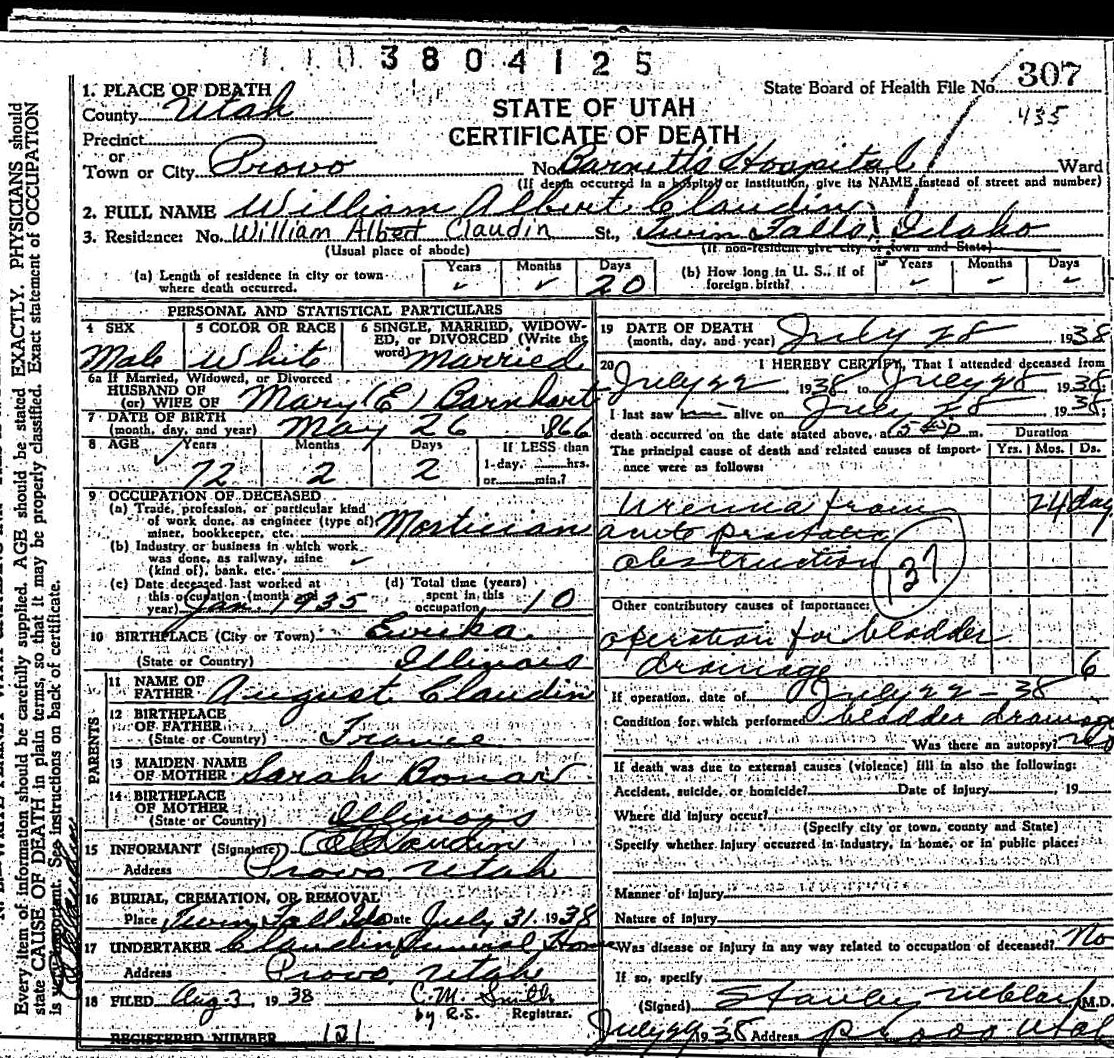 1 1 0 3 8 0 4 1 2 5
State Board of Health File No. 307
435
1. PLACE OF DEATH
County Utah
STATE OF UTAH
CERTIFICATE OF DEATH
Precinct
or
Town or City Provo No. Barnetts Hospital Ward
(If death occurred in a hospital or institution, give its NAME instead of street and number)
2. FULL NAME William Albert Claudin
3. Residence: No. William Albert Claudin St., Twin Falls, Idaho
(Usual place of abode) (If non-resident give city or town and State)
(a) Length of residence in city or town where death occurred. Years Months Days 20 (b) How long in U. S., if of foreign birth? Years Months Days
PERSONAL AND STATISTICAL PARTICULARS
4 SEX 5 COLOR OR RACE 6 SINGLE, MARRIED, WIDOWED, or DIVORCED (Write the word)
Male White Married
6a If Married, Widowed, or Divorced
HUSBAND OF
(or) WIFE OF Mary (E) Barnhart
7 DATE OF BIRTH
(month, day, and year) May 26 1866
8 AGE Years Months Days If LESS than
72 2 2 1-day, hrs.
or min.?
9 OCCUPATION OF DECEASED
(a) Trade, profession, or particular kind
of work done, as engineer (type of)
miner, bookkeeper, etc. Mortician
(b) Industry or business in which work
was done, as railway, mine
(kind of), bank, etc.
(c) Date deceased last worked at
this occupation (month and
year) Jan. 1935
(d) Total time (years)
spent in this
occupation 10
10 BIRTHPLACE (City or Town) Eureka
(State or Country) Illinois
PARENTS
11 NAME OF
FATHER August Claudin
12 BIRTHPLACE
OF FATHER
(State or Country) France
13 MAIDEN NAME
OF MOTHER Sarah Bonar
14 BIRTHPLACE
OF MOTHER
(State or Country) Illinois
15 INFORMANT (Signature) Claudin
Address Provo, Utah
16 BURIAL, CREMATION, OR REMOVAL
Place Twin Fall Ida Date July 31, 1938
17 UNDERTAKER Claudin Funeral Home
Address Provo, Utah
18 FILED Aug 3, 1938 C.M. Smith
by R.S. Registrar.
REGISTERED NUMBER 121
19 DATE OF DEATH
(month, day, and year) July 28 1938
20 I HEREBY CERTIFY, That I attended deceased from
July 22 1938 to July 28 1938
I last saw him alive on July 28 1938;
death occurred on the date stated above, at m. Duration
The principal cause of death and related causes of importance were as follows: Yrs. Mos. Ds.
Uremia from 24 day
acute prostatic
obstruction
137
Other contributory causes of importance:
operation for bladder
drainage 6
If operation, date of July 22 - 38
Condition for which performed bladder drainage
Was there an autopsy? no
If death was due to external causes (violence) fill in also the following:
Accident, suicide, or homicide? Date of Injury , 19
Where did injury occur?
(Specify city or town, county and State)
Specify whether injury occurred in industry, in home, or in public place:
Manner of injury
Nature of injury
Was disease or injury in any way related to occupation of deceased? No
If so, specify
(Signed) Stanley M.D.
July 29 1938 Address Provo Utah
Every item of information should be carefully supplied. AGE should be stated EXACTLY. PHYSICIANS should
state CAUSE OF DEATH in plain terms, so that it may be properly classified. Exact statement of OCCUPATION
is very important. See instructions on back of certificate.